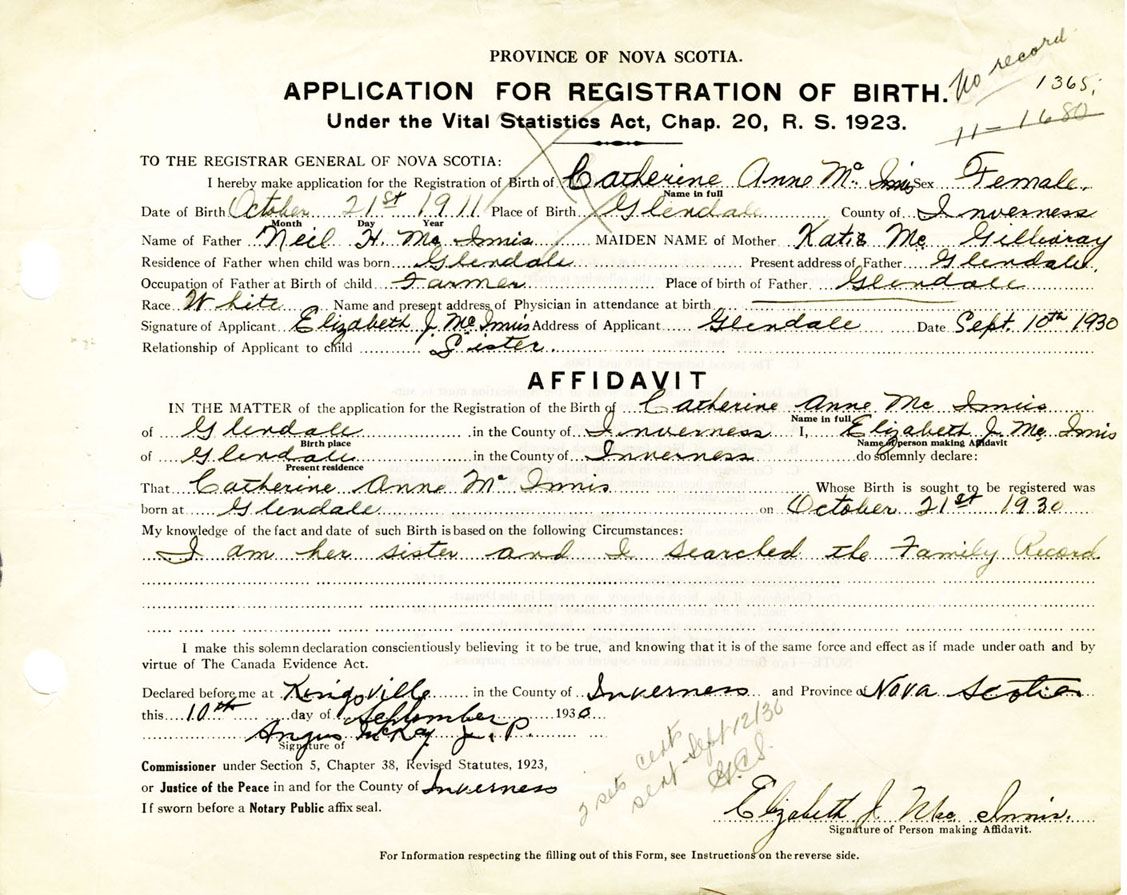 PROVINCE OF NOVA SCOTIA.
No record
1365;
APPLICATION FOR REGISTRATION OF BIRTH.
11-1680
Under the Vital Statistics Act, Chap. 20, R. S. 1923.
TO THE REGISTRAR GENERAL OF NOVA SCOTIA:
I hereby make application for the Registration of Birth of Catherine Anne Mc Innis Sex Female.
Name in full
Date of Birth October 21st 1911 Place of Birth Glendale County of Inverness
Month Day Year
Name of Father Neil H. Mc Innis MAIDEN NAME of Mother Katie Mc Gillivray
Residence of Father when child was born Glendale Present address of Father Glendale.
Occupation of Father at Birth of child Farmer Place of birth of Father. Glendale
Race White Name and present address of Physician in attendance at birth
Signature of Applicant Elizabeth J. Mc Innis Address of Applicant Glendale Date Sept. 10th 1930
Relationship of Applicant to child Sister.
AFFIDAVIT
IN THE MATTER of the application for the Registration of the Birth of Catherine Anne Mc Innis
Name in full
of Glendale in the County of Inverness I, Elizabeth J. Mc Innis
Birth place Name of person making Affidavit
of Glendale in the County of Inverness do solemnly declare:
Present residence
That Catherine Anne Mc Innis Whose Birth is sought to be registered was
born at Glendale on October 21st 1930
My knowledge of the fact and date of such Birth is based on the following Circumstances:
I am her sister and I searched the Family Record
I make this solemn declaration conscientiously believing it to be true, and knowing that it is of the same force and effect as if made under oath and by
virtue of The Canada Evidence Act.
Declared before me at Kingsville in the County of Inverness and Province of Nova Scotia
this 10th day of September 1930
Angus McKay J. P.
Signature of
Commissioner under Section 5, Chapter 38, Revised Statutes, 1923,
or Justice of the Peace in and for the County of Inverness
If sworn before a Notary Public affix seal.
2 sets certs
sent Sept 12/30
Elizabeth J. Mac Innis.
Signature of Person making Affidavit.
For Information respecting the filling out of this Form, see Instructions on the reverse side.